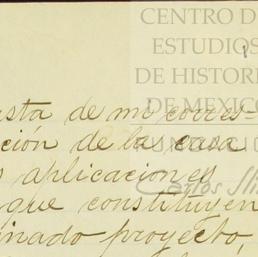 CENTRO DE
ESTUDIOS
DE HISTORI
DE MEXICO
FUNDACIÓN
Carlos Sli
usta de mi corres=
ción de la casa
s aplicaciones
que constituyen
inado proyecto,